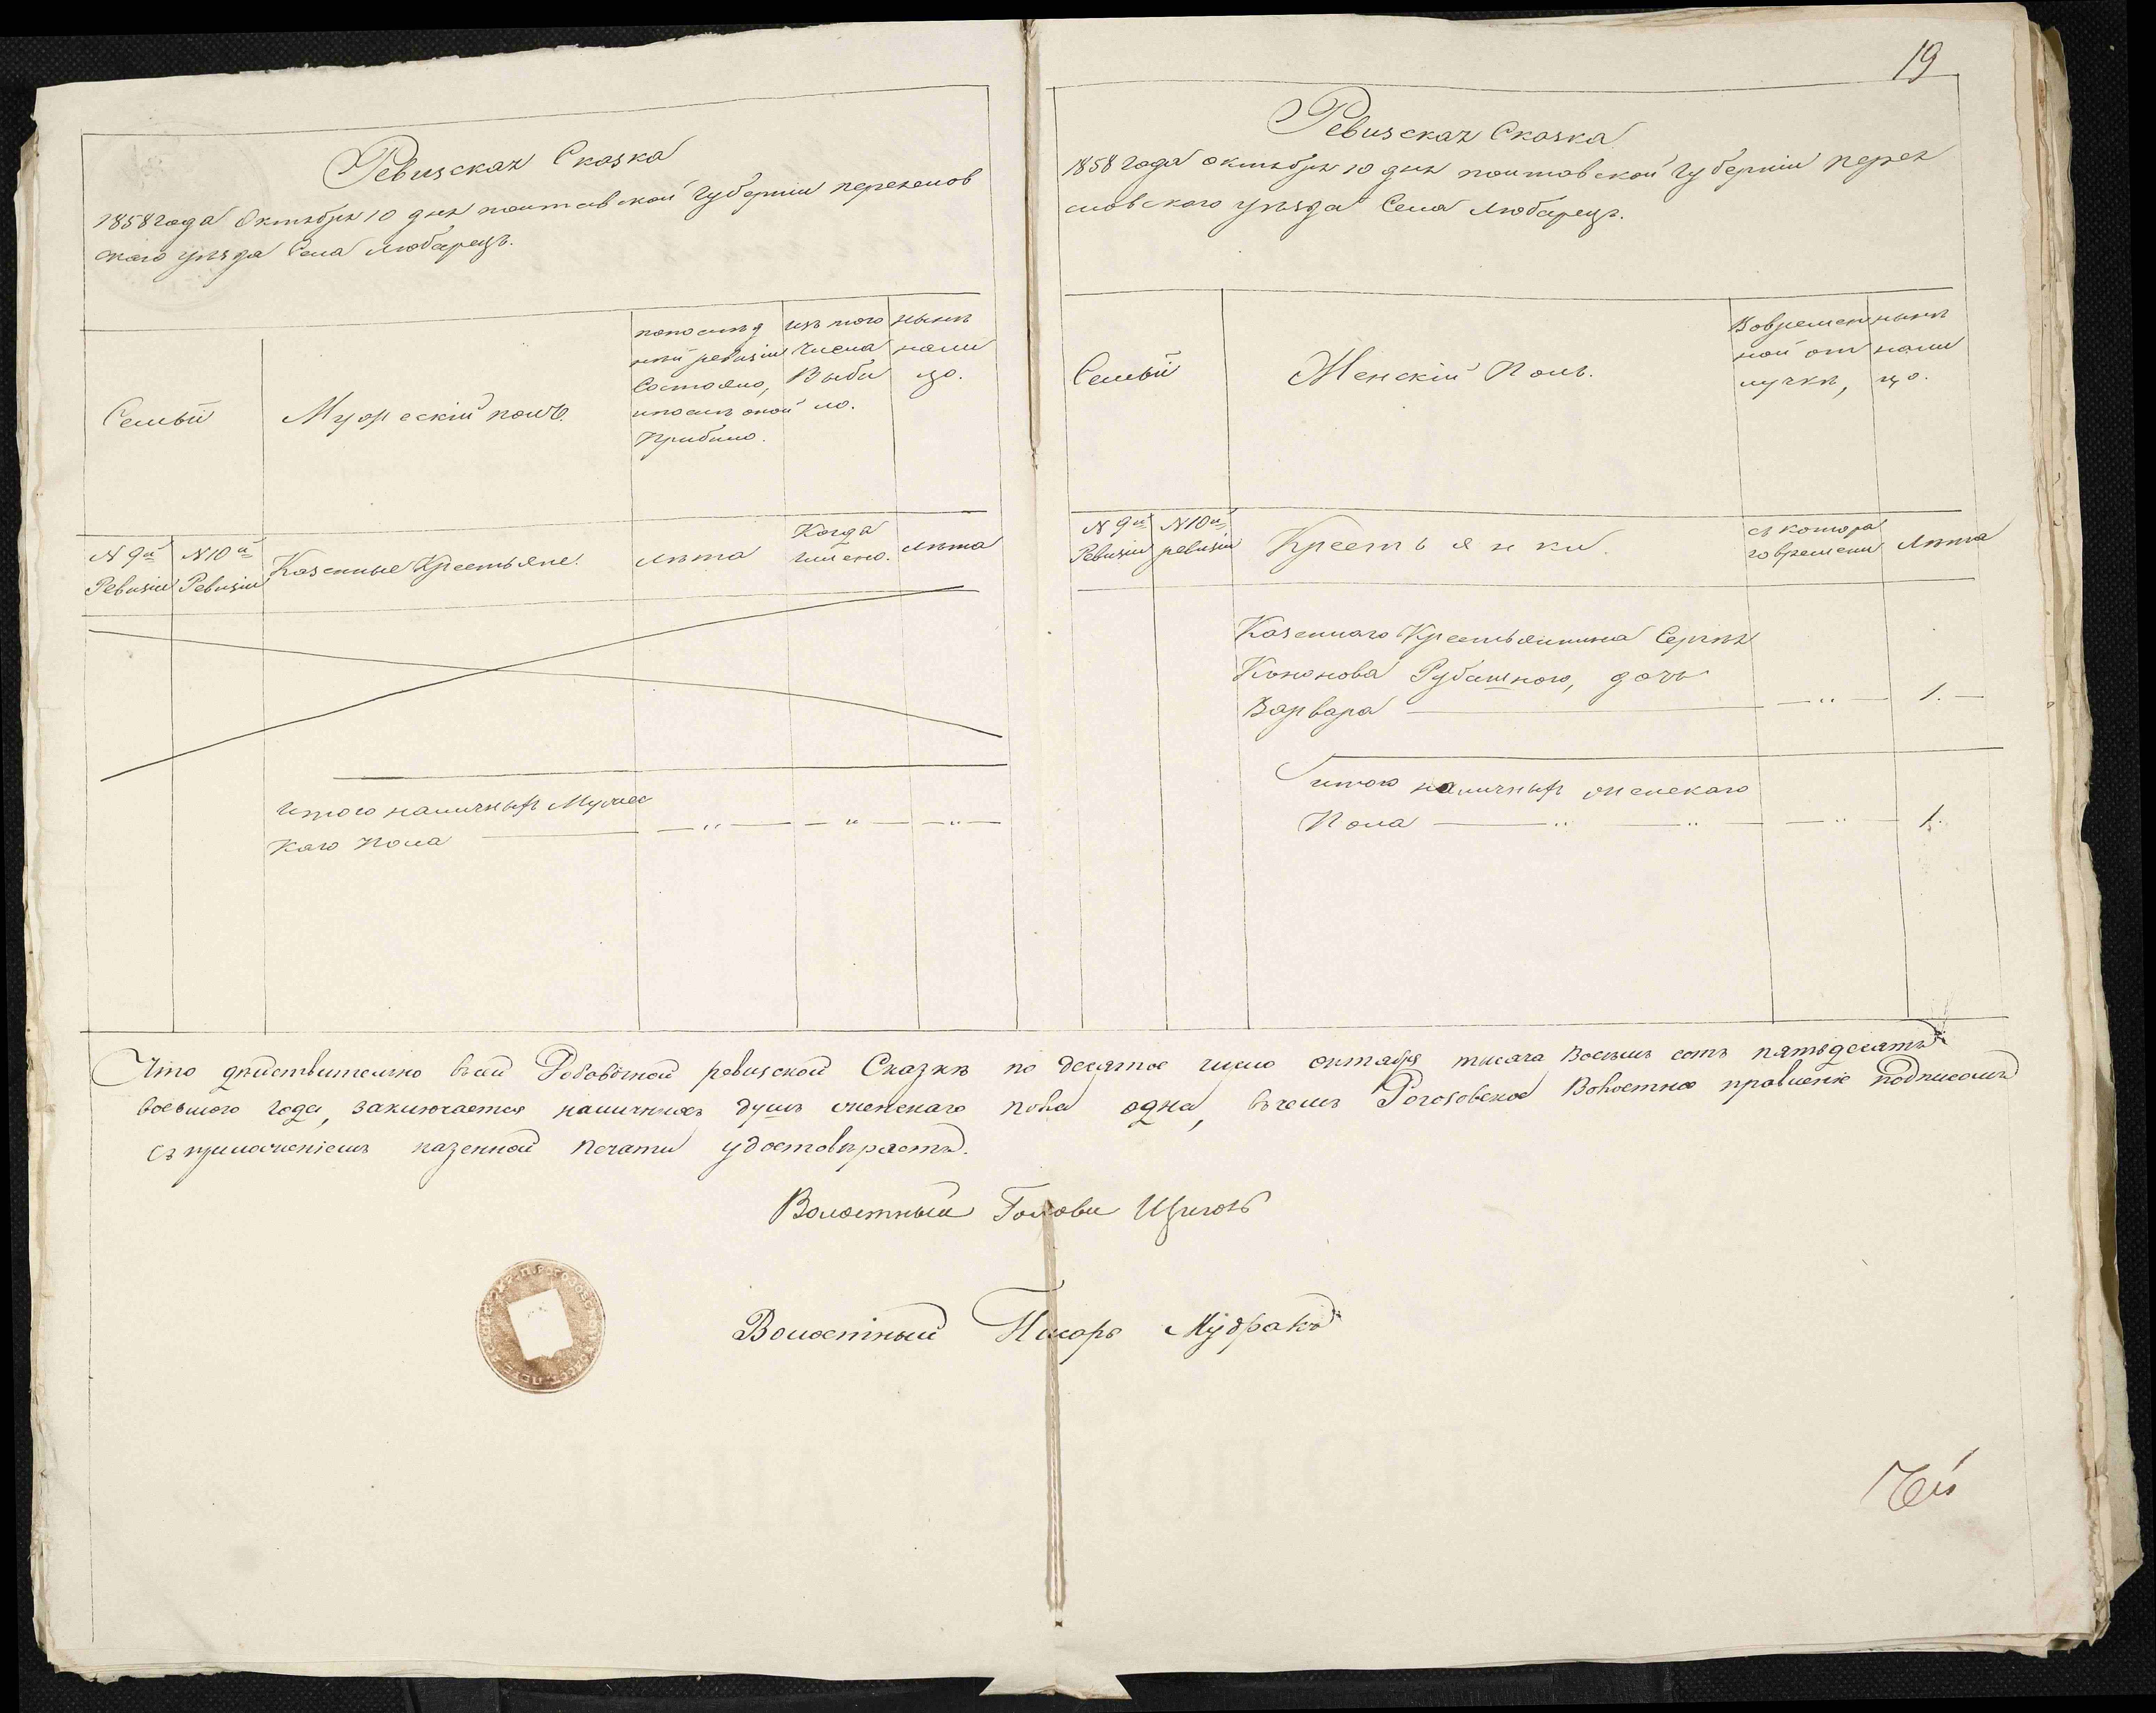 19
Ревизская Сказка
1858 года Октября 10 дня полтавской Губерніи переяслов
скаго уѣзда Села Любарецъ.
Семьи
Мужескій полъ.
попослѣд
ней ревизіи
Состояло,
ипослѣ оной
Прибыло.
изъ того
Числа
Выбы
ло.
нынѣ
нали
цо.
N 9й
Ревизіи
N 10й
Ревизіи
Казенные Крестьяне.
Лѣта
Когда
имено.
Лѣта
Итого наличныхъ Мужес
Каго Пола — „ — — „ — — „ —
Ревизская Сказка
1858 года октября 10 дня полтавской Губерніи перея
словскаго уѣзда Села Любарецъ.
Семьи
Женскій Полъ.
Вовремен
ной от
лучкѣ,
нынѣ
нали
цо.
N 9й
Ревизіи
N 10й
ревизіи
Крестьянки.
съ котора
го времени
Лѣта
Казеннаго Крестьянина Сергѣя
Кононова Рубашного, дочь
Варвара — „ — 1. —
Итого наличныхъ женскаго
Пола — „ — „ — — „ — 1.
Что дѣйствительно въсей ревизской Сказкѣ по десятое число октября тысяча восемь сотъ пятьдесятъ
восьмого года, заключается наличныхъ душъ женскаго пола одна, въчемъ Рогозовское Волостное правленіе подписомъ
съ приложеніемъ казенной печати удостовѣряетъ.
Волостный Голова
Волостный Писарь Мудракъ